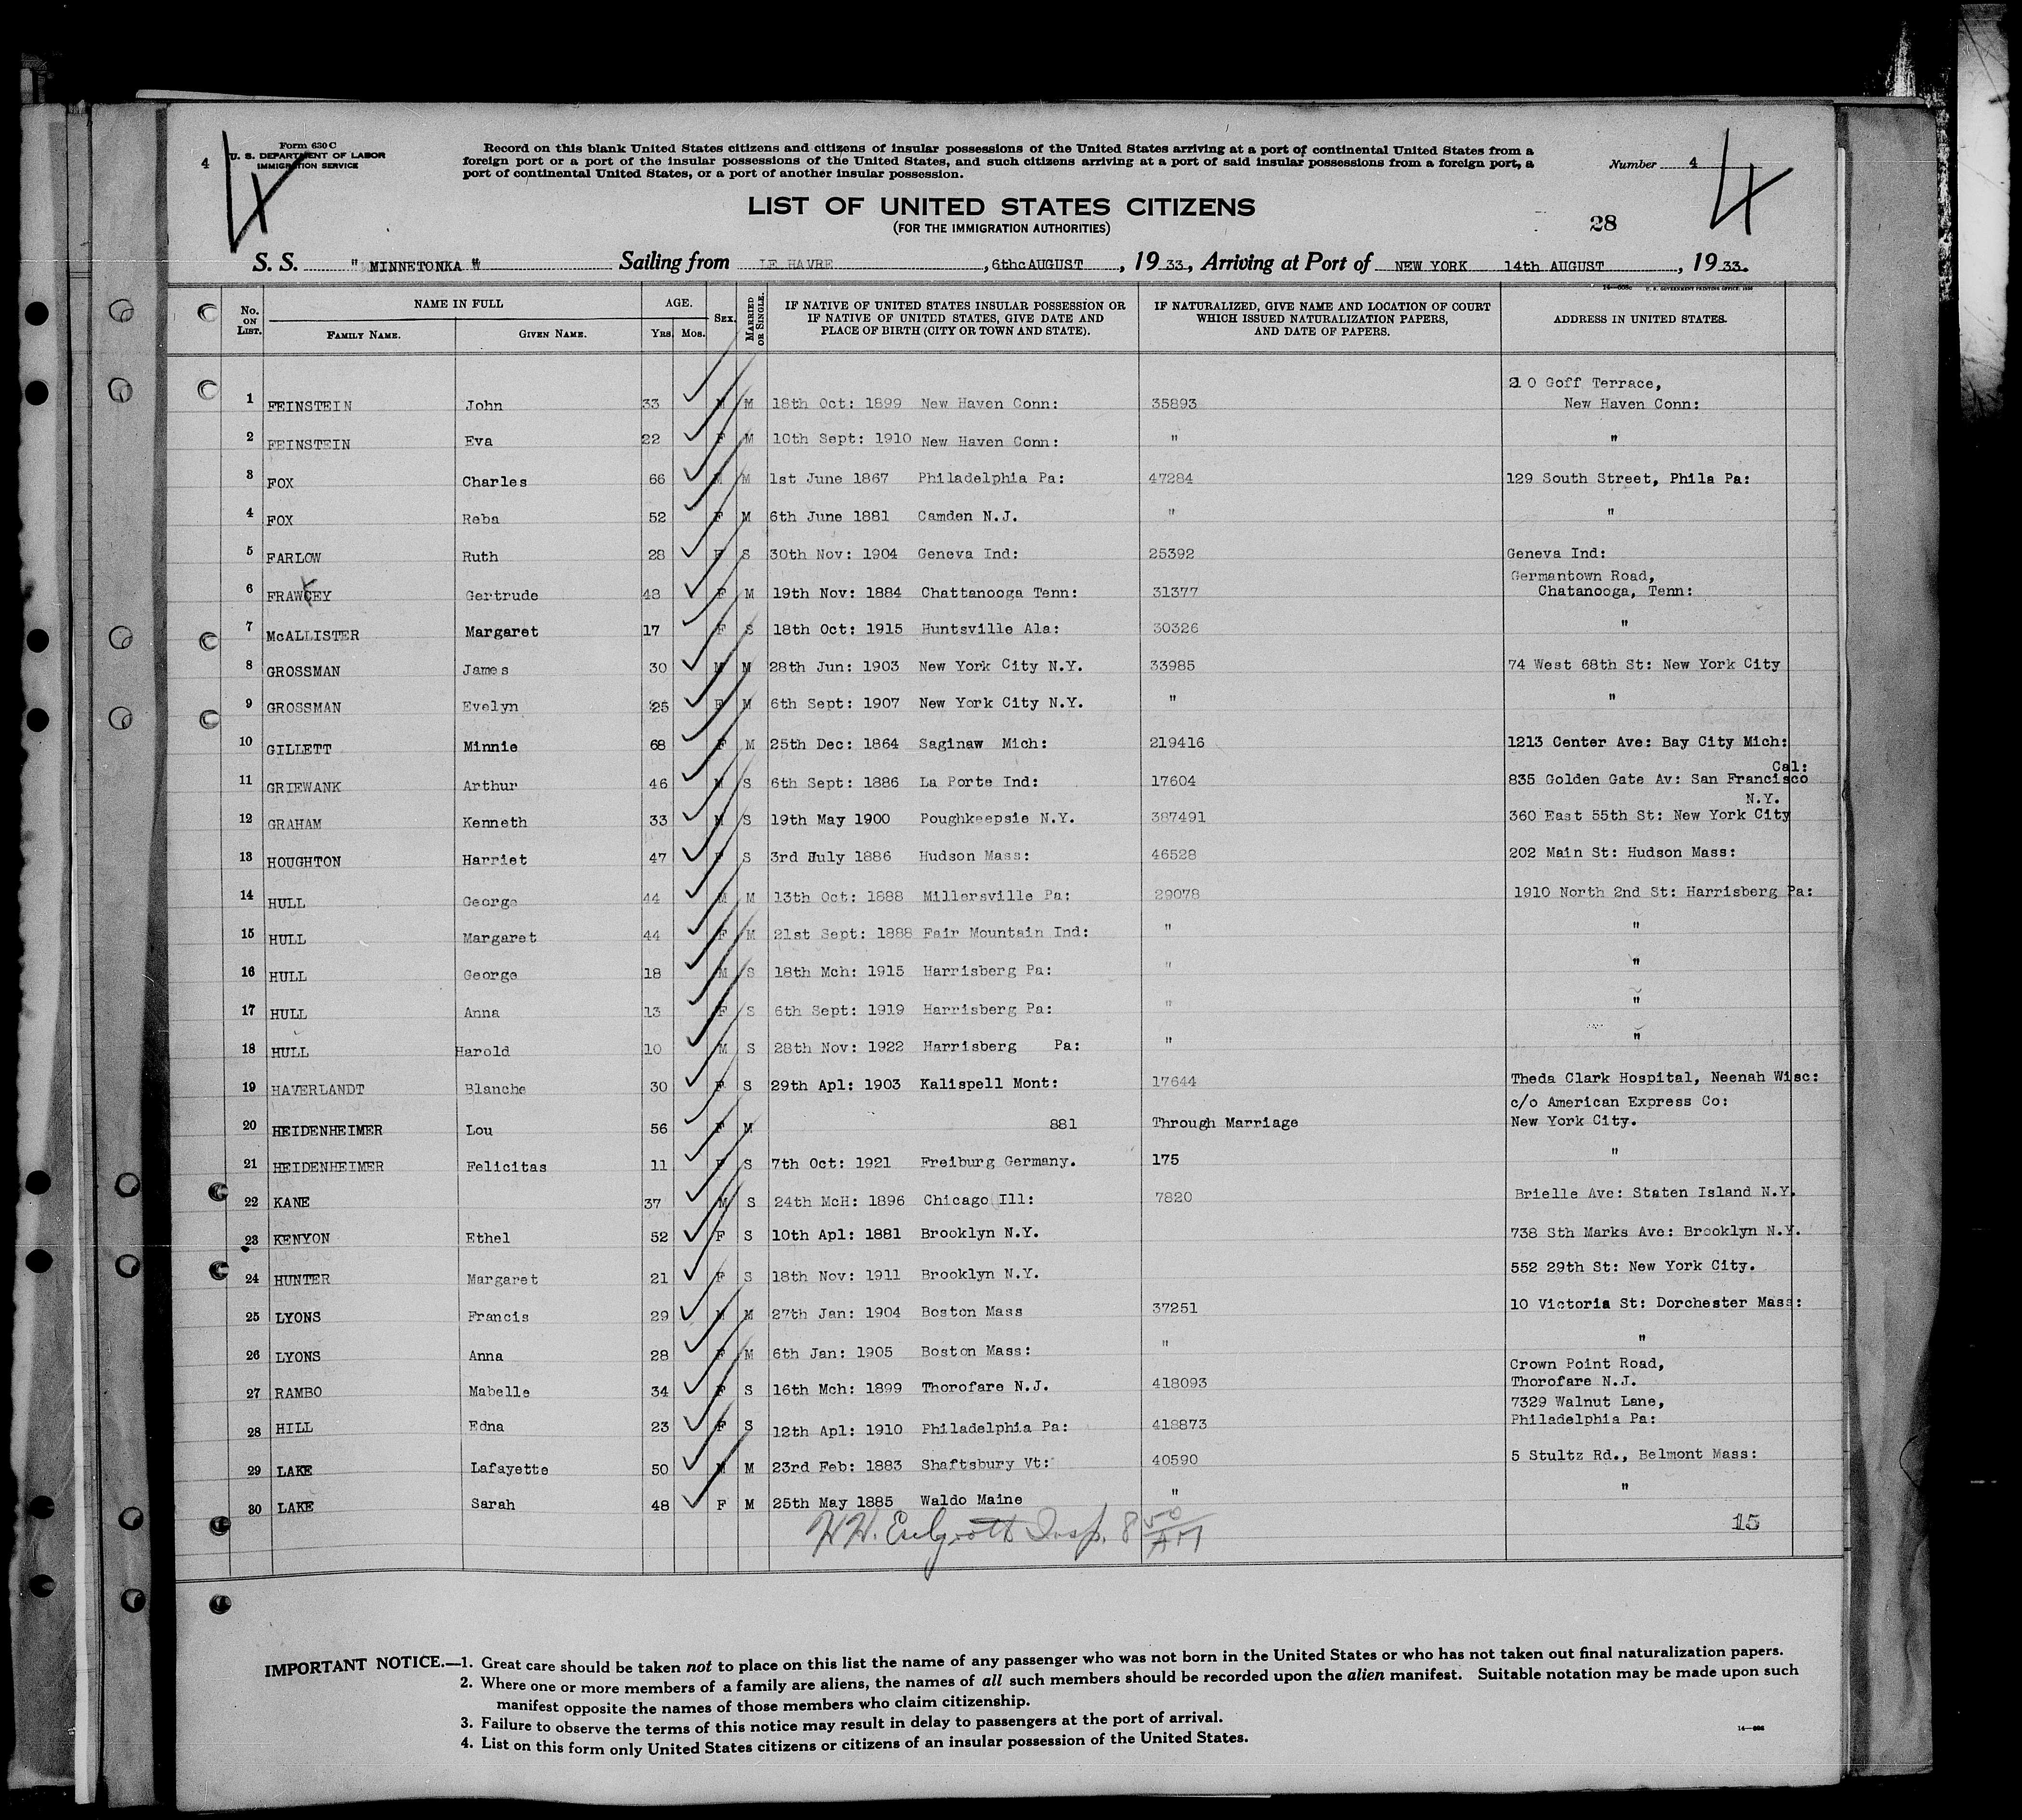 4
Form 630 C
U. S. DEPARTMENT OF LABOR
IMMIGRATION SERVICE
4
Record on this blank United States citizens and citizens of insular possessions of the United States arriving at a port of continental United States from a
foreign port or a port of the insular possessions of the United States, and such citizens arriving at a port of said insular possessions from a foreign port, a
port of continental United States, or a port of another insular possession.
Number 4
4
LIST OF UNITED STATES CITIZENS
(FOR THE IMMIGRATION AUTHORITIES)
28
S. S. " MINNETONKA " Sailing from LE HAVRE , 6thc AUGUST , 19 33, Arriving at Port of NEW YORK 14th AUGUST , 19 33.
No. ON LIST. NAME IN FULL AGE. SEX. MARRIED OR SINGLE. IF NATIVE OF UNITED STATES INSULAR POSSESSION OR IF NATIVE OF UNITED STATES, GIVE DATE AND PLACE OF BIRTH (CITY OR TOWN AND STATE). IF NATURALIZED, GIVE NAME AND LOCATION OF COURT WHICH ISSUED NATURALIZATION PAPERS, AND DATE OF PAPERS. ADDRESS IN UNITED STATES.
FAMILY NAME. GIVEN NAME. YRS. MOS.
210 Goff Terrace,
1 FEINSTEIN John 33 M M 18th Oct: 1899 New Haven Conn: 35893 New Haven Conn:
2 FEINSTEIN Eva 22 F M 10th Sept: 1910 New Haven Conn: " "
3 FOX Charles 66 M M 1st June 1867 Philadelphia Pa: 47284 129 South Street, Phila Pa:
4 FOX Reba 52 F M 6th June 1881 Camden N.J. " "
5 FARLOW Ruth 28 F S 30th Nov: 1904 Geneva Ind: 25392 Geneva Ind:
Germantown Road,
6 FRAWLEY Gertrude 48 F M 19th Nov: 1884 Chattanooga Tenn: 31377 Chatanooga, Tenn:
7 McALLISTER Margaret 17 F S 18th Oct: 1915 Huntsville Ala: 30326 "
8 GROSSMAN James 30 M M 28th Jun: 1903 New York City N.Y. 33985 74 West 68th St: New York City
9 GROSSMAN Evelyn 25 F M 6th Sept: 1907 New York City N.Y. " "
10 GILLETT Minnie 68 F M 25th Dec: 1864 Saginaw Mich: 219416 1213 Center Ave: Bay City Mich:
Cal:
11 GRIEWANK Arthur 46 M S 6th Sept: 1886 La Porte Ind: 17604 835 Golden Gate Av: San Francisco
N.Y.
12 GRAHAM Kenneth 33 M S 19th May 1900 Poughkeepsie N.Y. 387491 360 East 55th St: New York City
13 HOUGHTON Harriet 47 F S 3rd July 1886 Hudson Mass: 46528 202 Main St: Hudson Mass:
14 HULL George 44 M M 13th Oct: 1888 Millersville Pa: 29078 1910 North 2nd St: Harrisberg Pa:
15 HULL Margaret 44 F M 21st Sept: 1888 Fair Mountain Ind: " "
16 HULL George 18 M S 18th Mch: 1915 Harrisberg Pa: " "
17 HULL Anna 13 F S 6th Sept: 1919 Harrisberg Pa: " "
18 HULL Harold 10 M S 28th Nov: 1922 Harrisberg Pa: " "
19 HAVERLANDT Blanche 30 F S 29th Apl: 1903 Kalispell Mont: 17644 Theda Clark Hospital, Neenah Wisc:
c/o American Express Co:
20 HEIDENHEIMER Lou 56 F M 881 Through Marriage New York City.
21 HEIDENHEIMER Felicitas 11 F S 7th Oct: 1921 Freiburg Germany. 175 "
22 KANE 37 M S 24th McH: 1896 Chicago Ill: 7820 Brielle Ave: Staten Island N.Y.
23 KENYON Ethel 52 F S 10th Apl: 1881 Brooklyn N.Y. 738 Sth Marks Ave: Brooklyn N.Y.
24 HUNTER Margaret 21 F S 18th Nov: 1911 Brooklyn N.Y. 552 29th St: New York City.
25 LYONS Francis 29 M M 27th Jan: 1904 Boston Mass 37251 10 Victoria St: Dorchester Mass:
26 LYONS Anna 28 F M 6th Jan: 1905 Boston Mass: " "
Crown Point Road,
27 RAMBO Mabelle 34 F S 16th Mch: 1899 Thorofare N.J. 418093 Thorofare N.J.
7329 Walnut Lane,
28 HILL Edna 23 F S 12th Apl: 1910 Philadelphia Pa: 418873 Philadelphia Pa:
29 LAKE Lafayette 50 M M 23rd Feb: 1883 Shaftsbury Vt: 40590 5 Stultz Rd., Belmont Mass:
30 LAKE Sarah 48 F M 25th May 1885 Waldo Maine " "
Insp. 8 50 AM
15
IMPORTANT NOTICE.—1. Great care should be taken not to place on this list the name of any passenger who was not born in the United States or who has not taken out final naturalization papers.
2. Where one or more members of a family are aliens, the names of all such members should be recorded upon the alien manifest. Suitable notation may be made upon such
manifest opposite the names of those members who claim citizenship.
3. Failure to observe the terms of this notice may result in delay to passengers at the port of arrival.
4. List on this form only United States citizens or citizens of an insular possession of the United States.